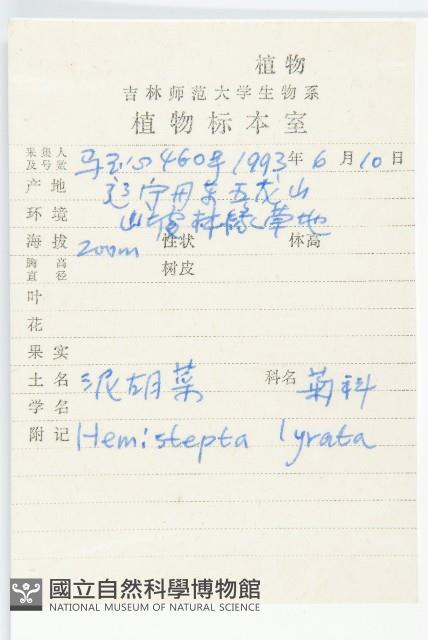 植物
吉林师范大学生物系
植物标本室
采集人及号数 马玉心 460号 1993年 6月 10日
产地 辽宁丹东五龙山
环境 山坡林缘草地
海拔 200m 性状 体高
胸高直径 树皮
叶
花
果实
土名 泥胡菜 科名 菊科
学名
附记 Hemistepta lyrata
國立自然科學博物館
NATIONAL MUSEUM OF NATURAL SCIENCE